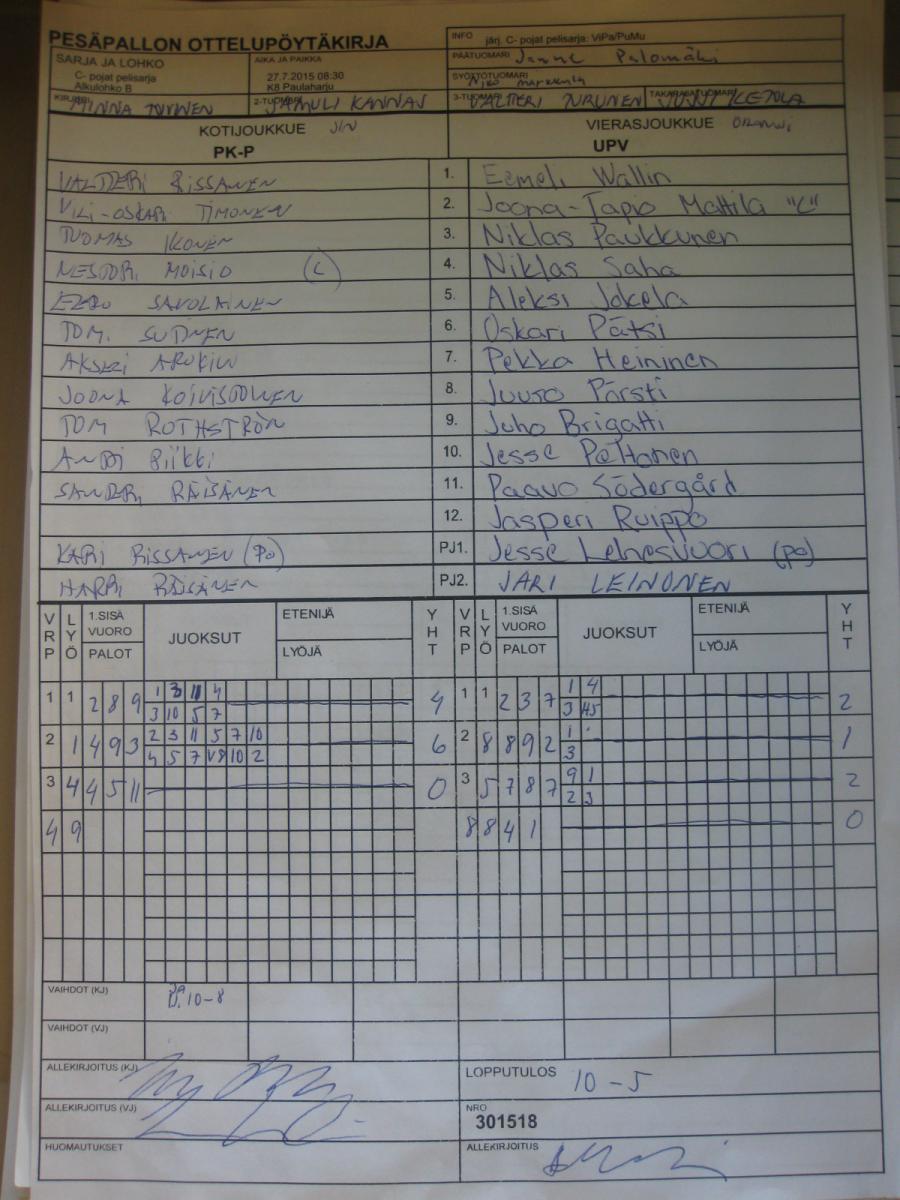 PESÄPALLON OTTELUPÖYTÄKIRJA
INFO järj. C- pojat pelisarja: ViPa/PuMu
SARJA JA LOHKO
C- pojat pelisarja
Alkulohko B
AIKA JA PAIKKA
27.7.2015 08:30
K8 Paulaharju
PÄÄTUOMARI Janne Palomäki
SYÖTTÖTUOMARI
KIRJURI MINNA
2-TUOMARI SAMULI KANNAS
3-TUOMARI VALTTERI TURUNEN
TAKARAJATUOMARI JUSSI KETOLA
KOTIJOUKKUE SIN
PK-P
VIERASJOUKKUE ORANSSI
UPV
VALTTERI RISSANEN 1. Eemeli Wallin
VILI-OSKARI TIMONEN 2. Joona-Tapio Mattila "C"
TUOMAS IKONEN 3. Niklas Paukkunen
NESTORI MOISIO (C) 4. Niklas Saha
EERO SAVOLAINEN 5. Aleksi Jokela
TOMI SUTINEN 6. Oskari Pätsi
AKSELI 7. Pekka Heininen
JOONA KOIVISTOINEN 8. Juuso Pörsti
TOM ROTHSTRÖM 9. Juho Brigatti
ANTTI PIIKKI 10. Jesse Peltonen
SANTERI RÄISÄNEN 11. Paavo Södergård
12. Jasperi Ruippo
KARI RISSANEN (PO) PJ1. Jesse Lehesvuori (po)
HARRI RÄISÄNEN PJ2. JARI LEINONEN
VRP LYÖ 1.SISÄ VUORO PALOT JUOKSUT ETENIJÄ LYÖJÄ YHT VRP LYÖ 1.SISÄ VUORO PALOT JUOKSUT ETENIJÄ LYÖJÄ YHT
1 1 2 8 9 1 3 11 4 4 1 1 2 3 7 1 4 2
3 10 5 7 3
2 1 4 9 3 2 3 11 5 7 10 6 2 8 8 9 2 1 1
4 5 7 10 2 3
3 4 4 5 11 0 3 5 7 8 7 9 1 2
2 3
4 9 8 8 4 1 0
VAIHDOT (KJ) 10-8
VAIHDOT (VJ)
ALLEKIRJOITUS (KJ)
LOPPUTULOS 10-5
ALLEKIRJOITUS (VJ)
NRO
301518
HUOMAUTUKSET
ALLEKIRJOITUS